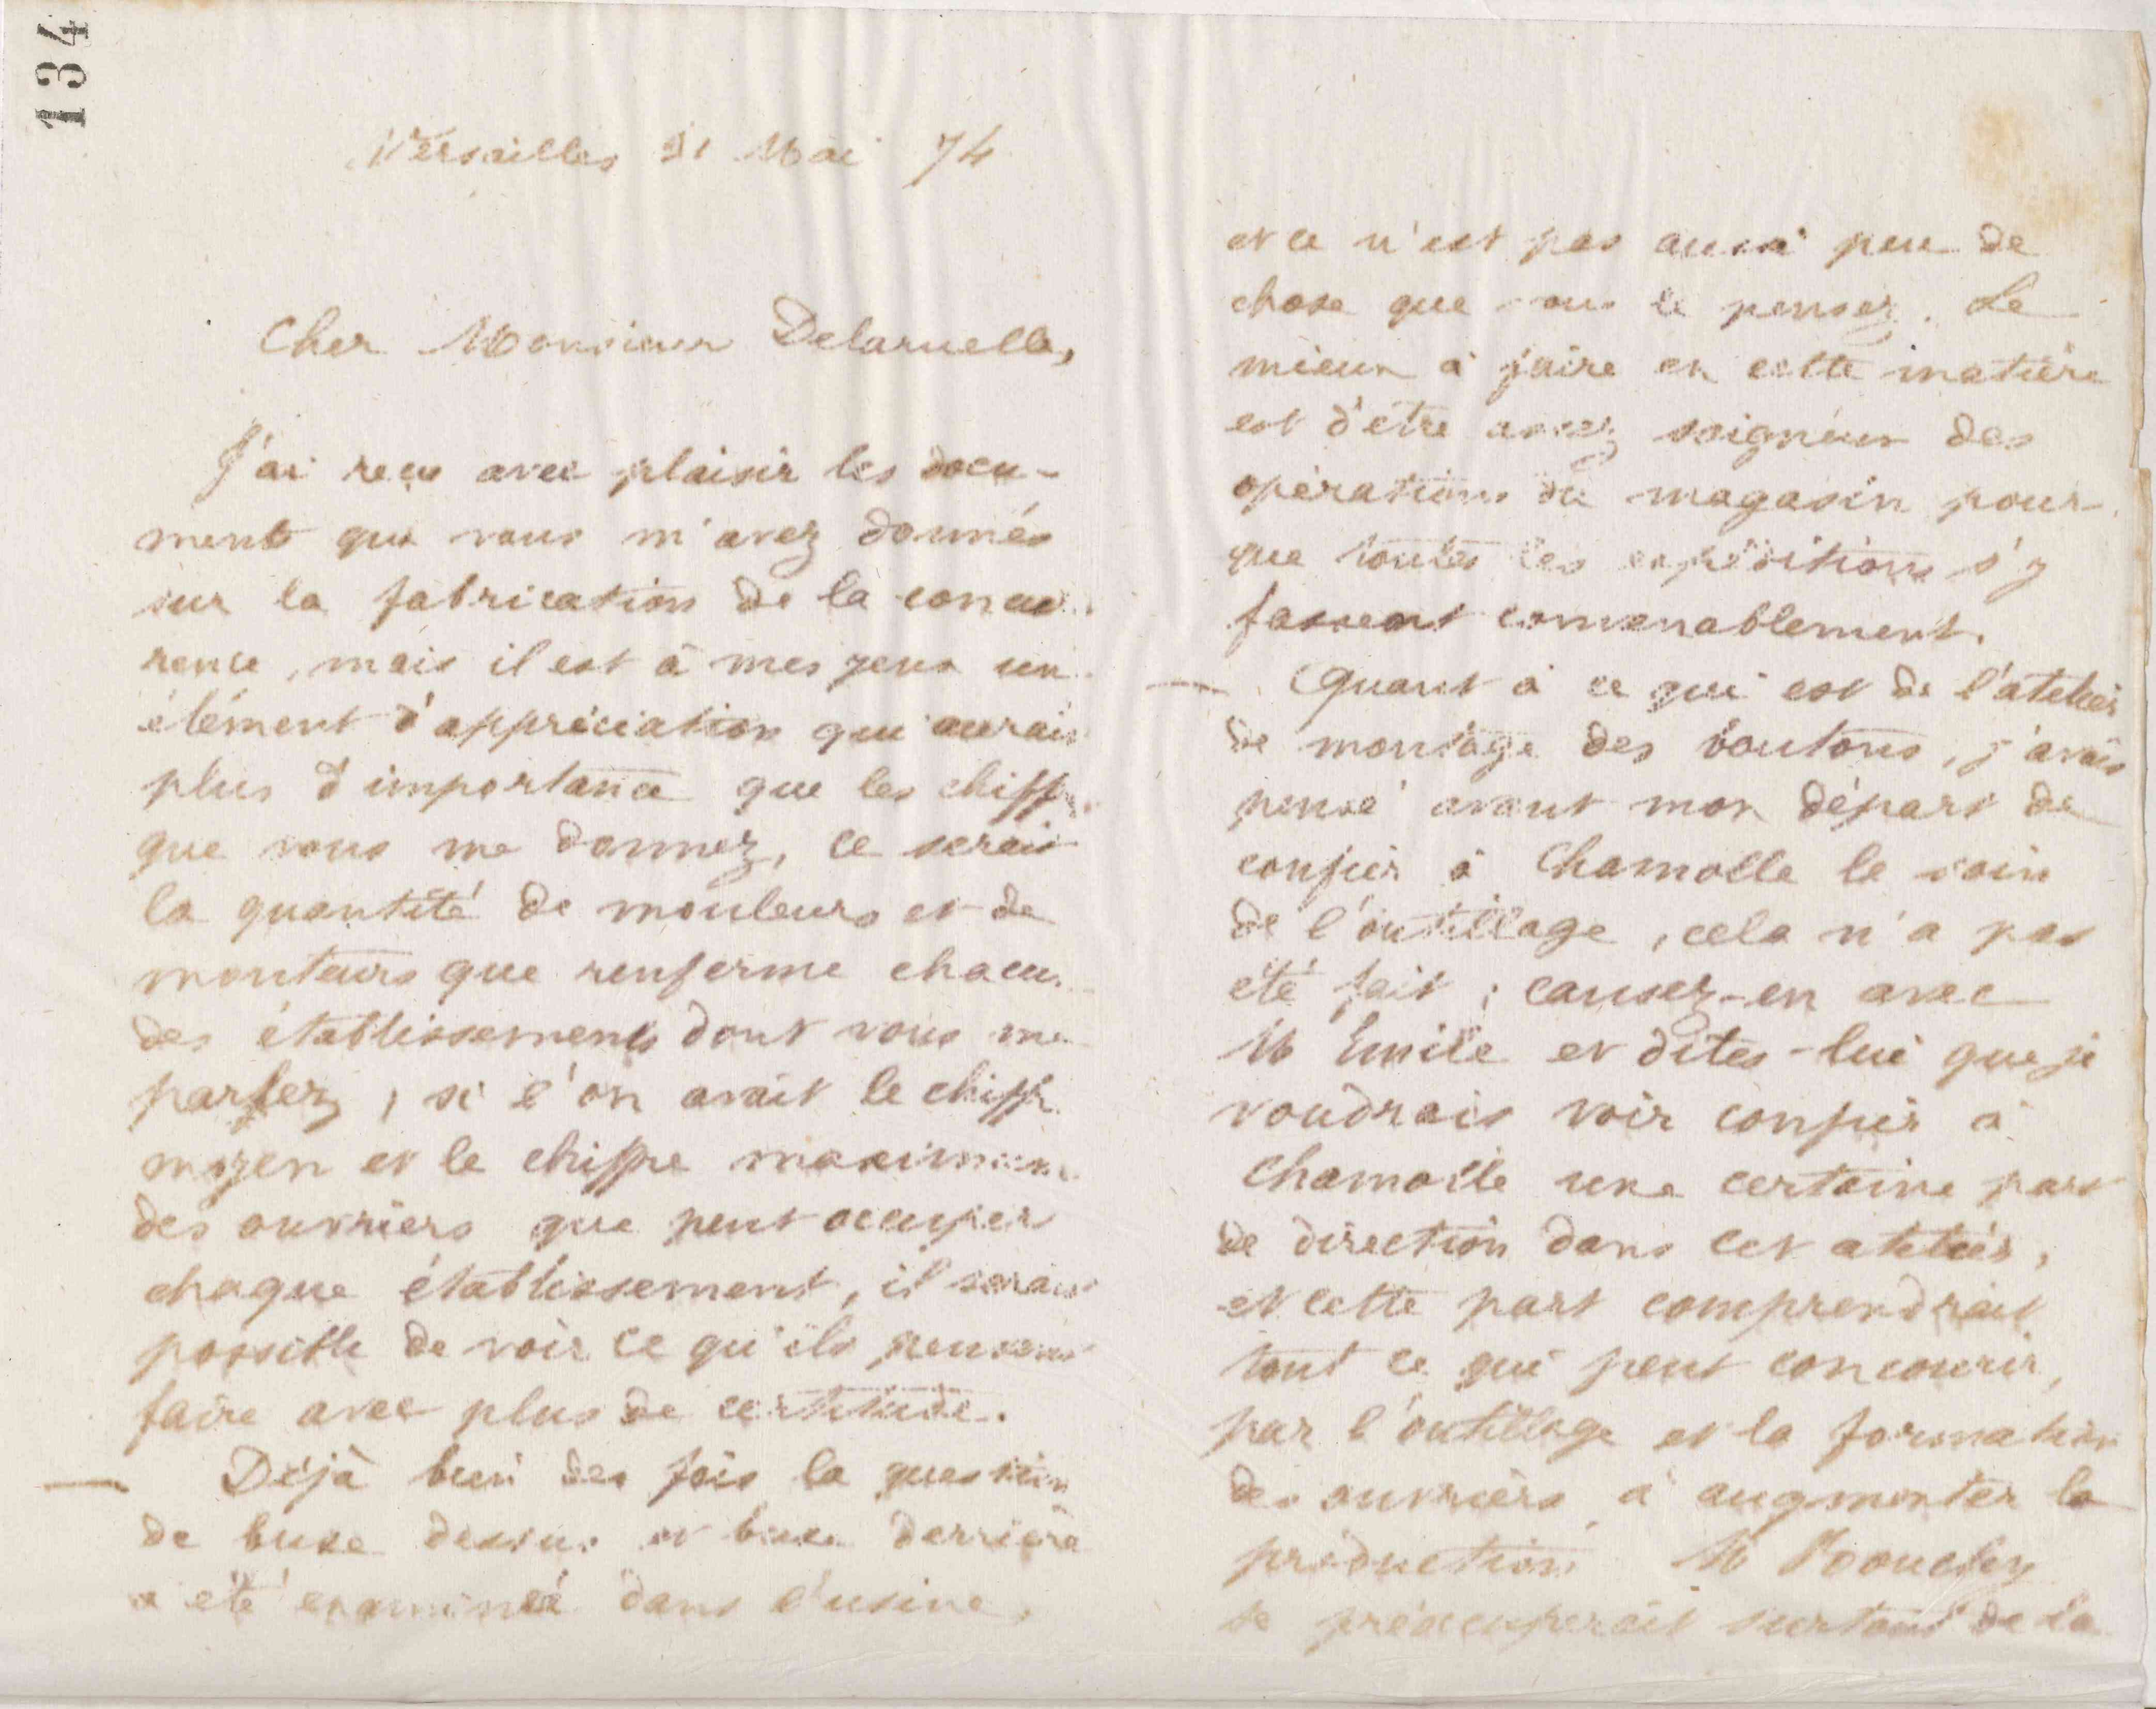 134
Versailles 31 Mai 74
Cher Monsieur Delaruelle,
J'ai reçu avec plaisir les docu-
ments que vous m'avez donnés
sur la fabrication de la concur
rence, mais il est à mes yeux un
élément d'appréciation qui aurait
plus d'importance que les chiffr
que vous me donnez, ce serait
la quantité de mouleurs et de
monteurs que renferme chacun
des établissements dont vous me
parlez, si l'on avait le chiffr
moyen et le chiffre maximum
des ouvriers que peut occuper
chaque établissement, il serait
possible de voir ce qu'ils peuvent
faire avec plus de certitude.
— Déjà bien des fois la question
de buse dessus et buse derrière
a été examinée dans l'usine,
et ce n'est pas aussi peu de
chose que vous le pensez. Le
mieux à faire en cette matière
est d'être assez soigneux des
opérations du magasin pour
que toutes les expéditions s'y
fassent convenablement.
— Quant à ce qui est de l'atelier
de montage des boutons, j'avais
pensé avant mon départ de
confier à Chamolle le soin
de l'outillage, cela n'a pas
été fait ; causez-en avec
M Emile et dites-lui que je
voudrais voir confier à
Chamolle une certaine part
de direction dans cet atelier,
et cette part comprendrait
tout ce qui peut concourir,
par l'outillage et la formation
des ouvriers, à augmenter la
production. M
se préoccuperait surtout de la